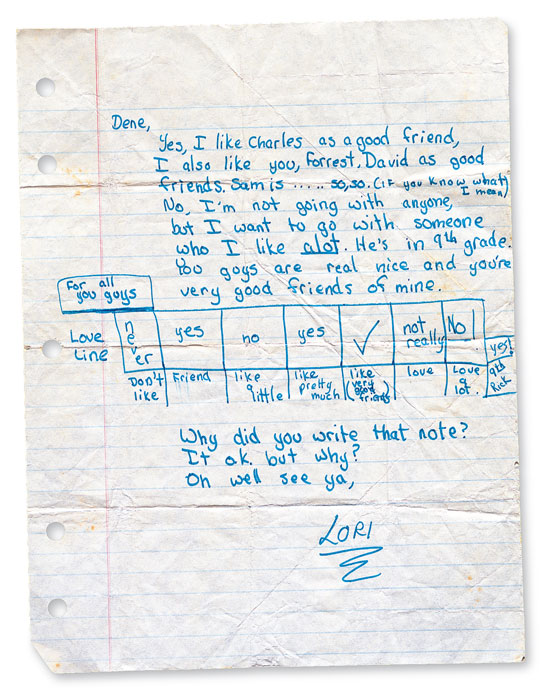 Dene,
Yes, I like Charles as a good friend,
I also like you, Forrest, David as good
friends. Sam is ..... so, so. (if you know what
I mean)
No, I'm not going with anyone,
but I want to go with someone
who I like alot. He's in 9th grade.
You guys are real nice and you're
very good friends of mine.
For all
you guys
Love
Line
never
yes
no
yes
✓
not
really
No!
yes!
Don't
like
Friend
like
a
little
like
pretty
much
like
(very
good
friends)
love
Love
a
lot.
9th
Rick
Why did you write that note?
It ok. but why?
Oh well see ya,
LORI